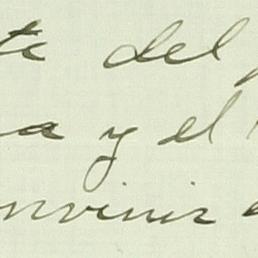 te del
a y el
nvenir